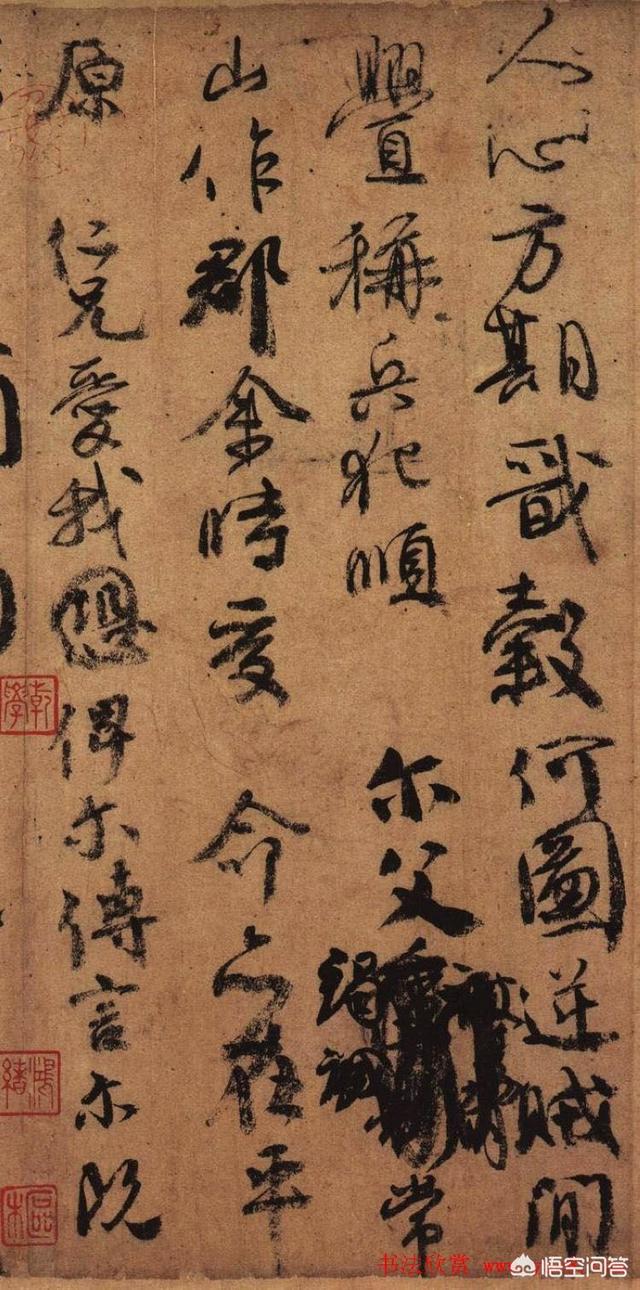 人心方期戩穀何圖逆賊間
釁稱兵犯順 尔父竭誠常
山作郡余時受 命亦在平
原 仁兄愛我俾尔傳言尔既
乾學
书法欣赏
悟空问答